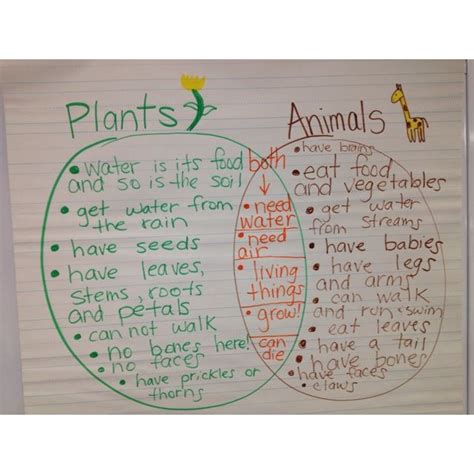 Plants
• water is its food
and so is the soil
• get water from
the rain
• have seeds
• have leaves,
stems, roots
and petals
• can not walk
• no bones here!
• no faces
• have prickles or
thorns
both
• need
water
• need
air
• living
things
• grow!
can
die
Animals
• have brains
• eat food
and vegetables
• get water
from streams
• have babies
• have legs
and arms
• can walk
and run + swim
• eat leaves
• have a tail
• have bones
• have faces
• claws